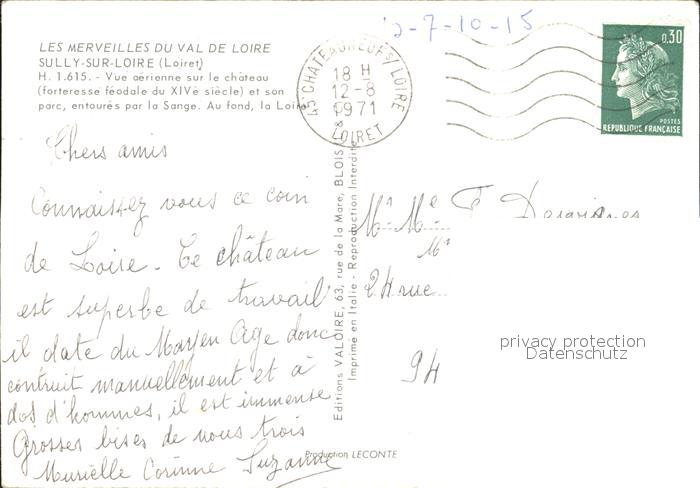 LES MERVEILLES DU VAL DE LOIRE
SULLY-SUR-LOIRE (Loiret)
H. 1.615. - Vue aérienne sur le château
(forteresse féodale du XIVe siècle) et son
parc, entourés par la Sange. Au fond, la Loire
Chers amis
Connaissez vous ce coin
de Loire. Ce château
est superbe de travail
il date du Moyen Age donc
contruit manuellement et à
dos d'hommes, il est immense
Grosses bises de nous trois
Murielle Corinne Suzanne
Editions VALOIRE, 63, rue de la Mare, BLOIS
Imprimé en Italie - Reproduction Interdite
Production LECONTE
7-10-15
45 CHATEAUNEUF S/ LOIRE
18 H
12-8
1971
LOIRET
0,30
POSTES
REPUBLIQUE FRANÇAISE
Mr Me F
24 rue
94
privacy protection
Datenschutz